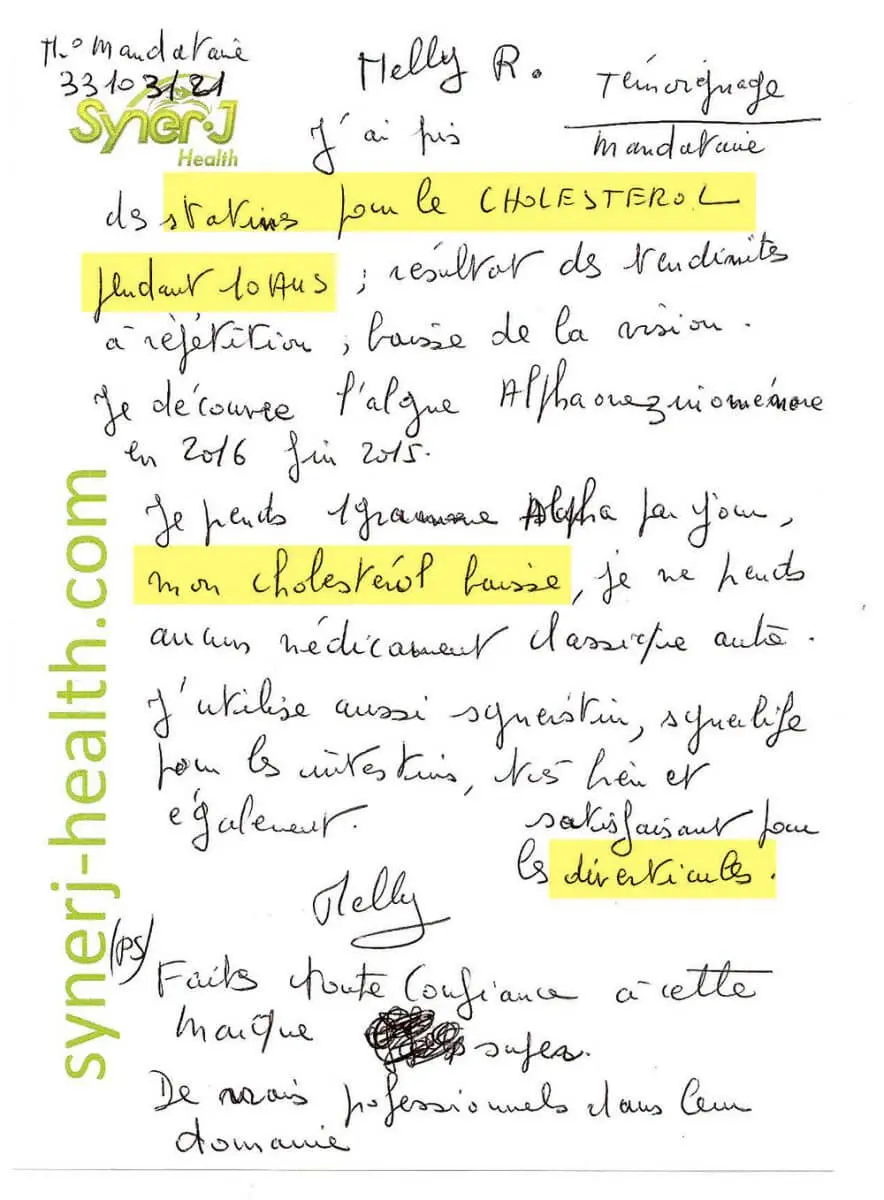 N.º Mandataire
33103/21
Syner.J
Health
Melly R.
Témoignage
Mandataire
J'ai pris
des statines pour le CHOLESTEROL
pendant 10 ANS ; résultat des tendinites
à répétition ; baisse de la vision.
Je découvre l'algue Alphaonezniomémore
en 2016 fin 2015.
Je prends 1 gramme Alpha par jour,
mon cholestérol baisse, je ne prends
aucun médicament classique autre.
J'utilise aussi synerstin, synerlife
pour les intestins, très bien et
également. satisfaisant pour
les diverticules.
Melly
(PS)
Faites toute Confiance à cette
marque super.
De vrais professionnels dans leur
domaine
synerj-health.com